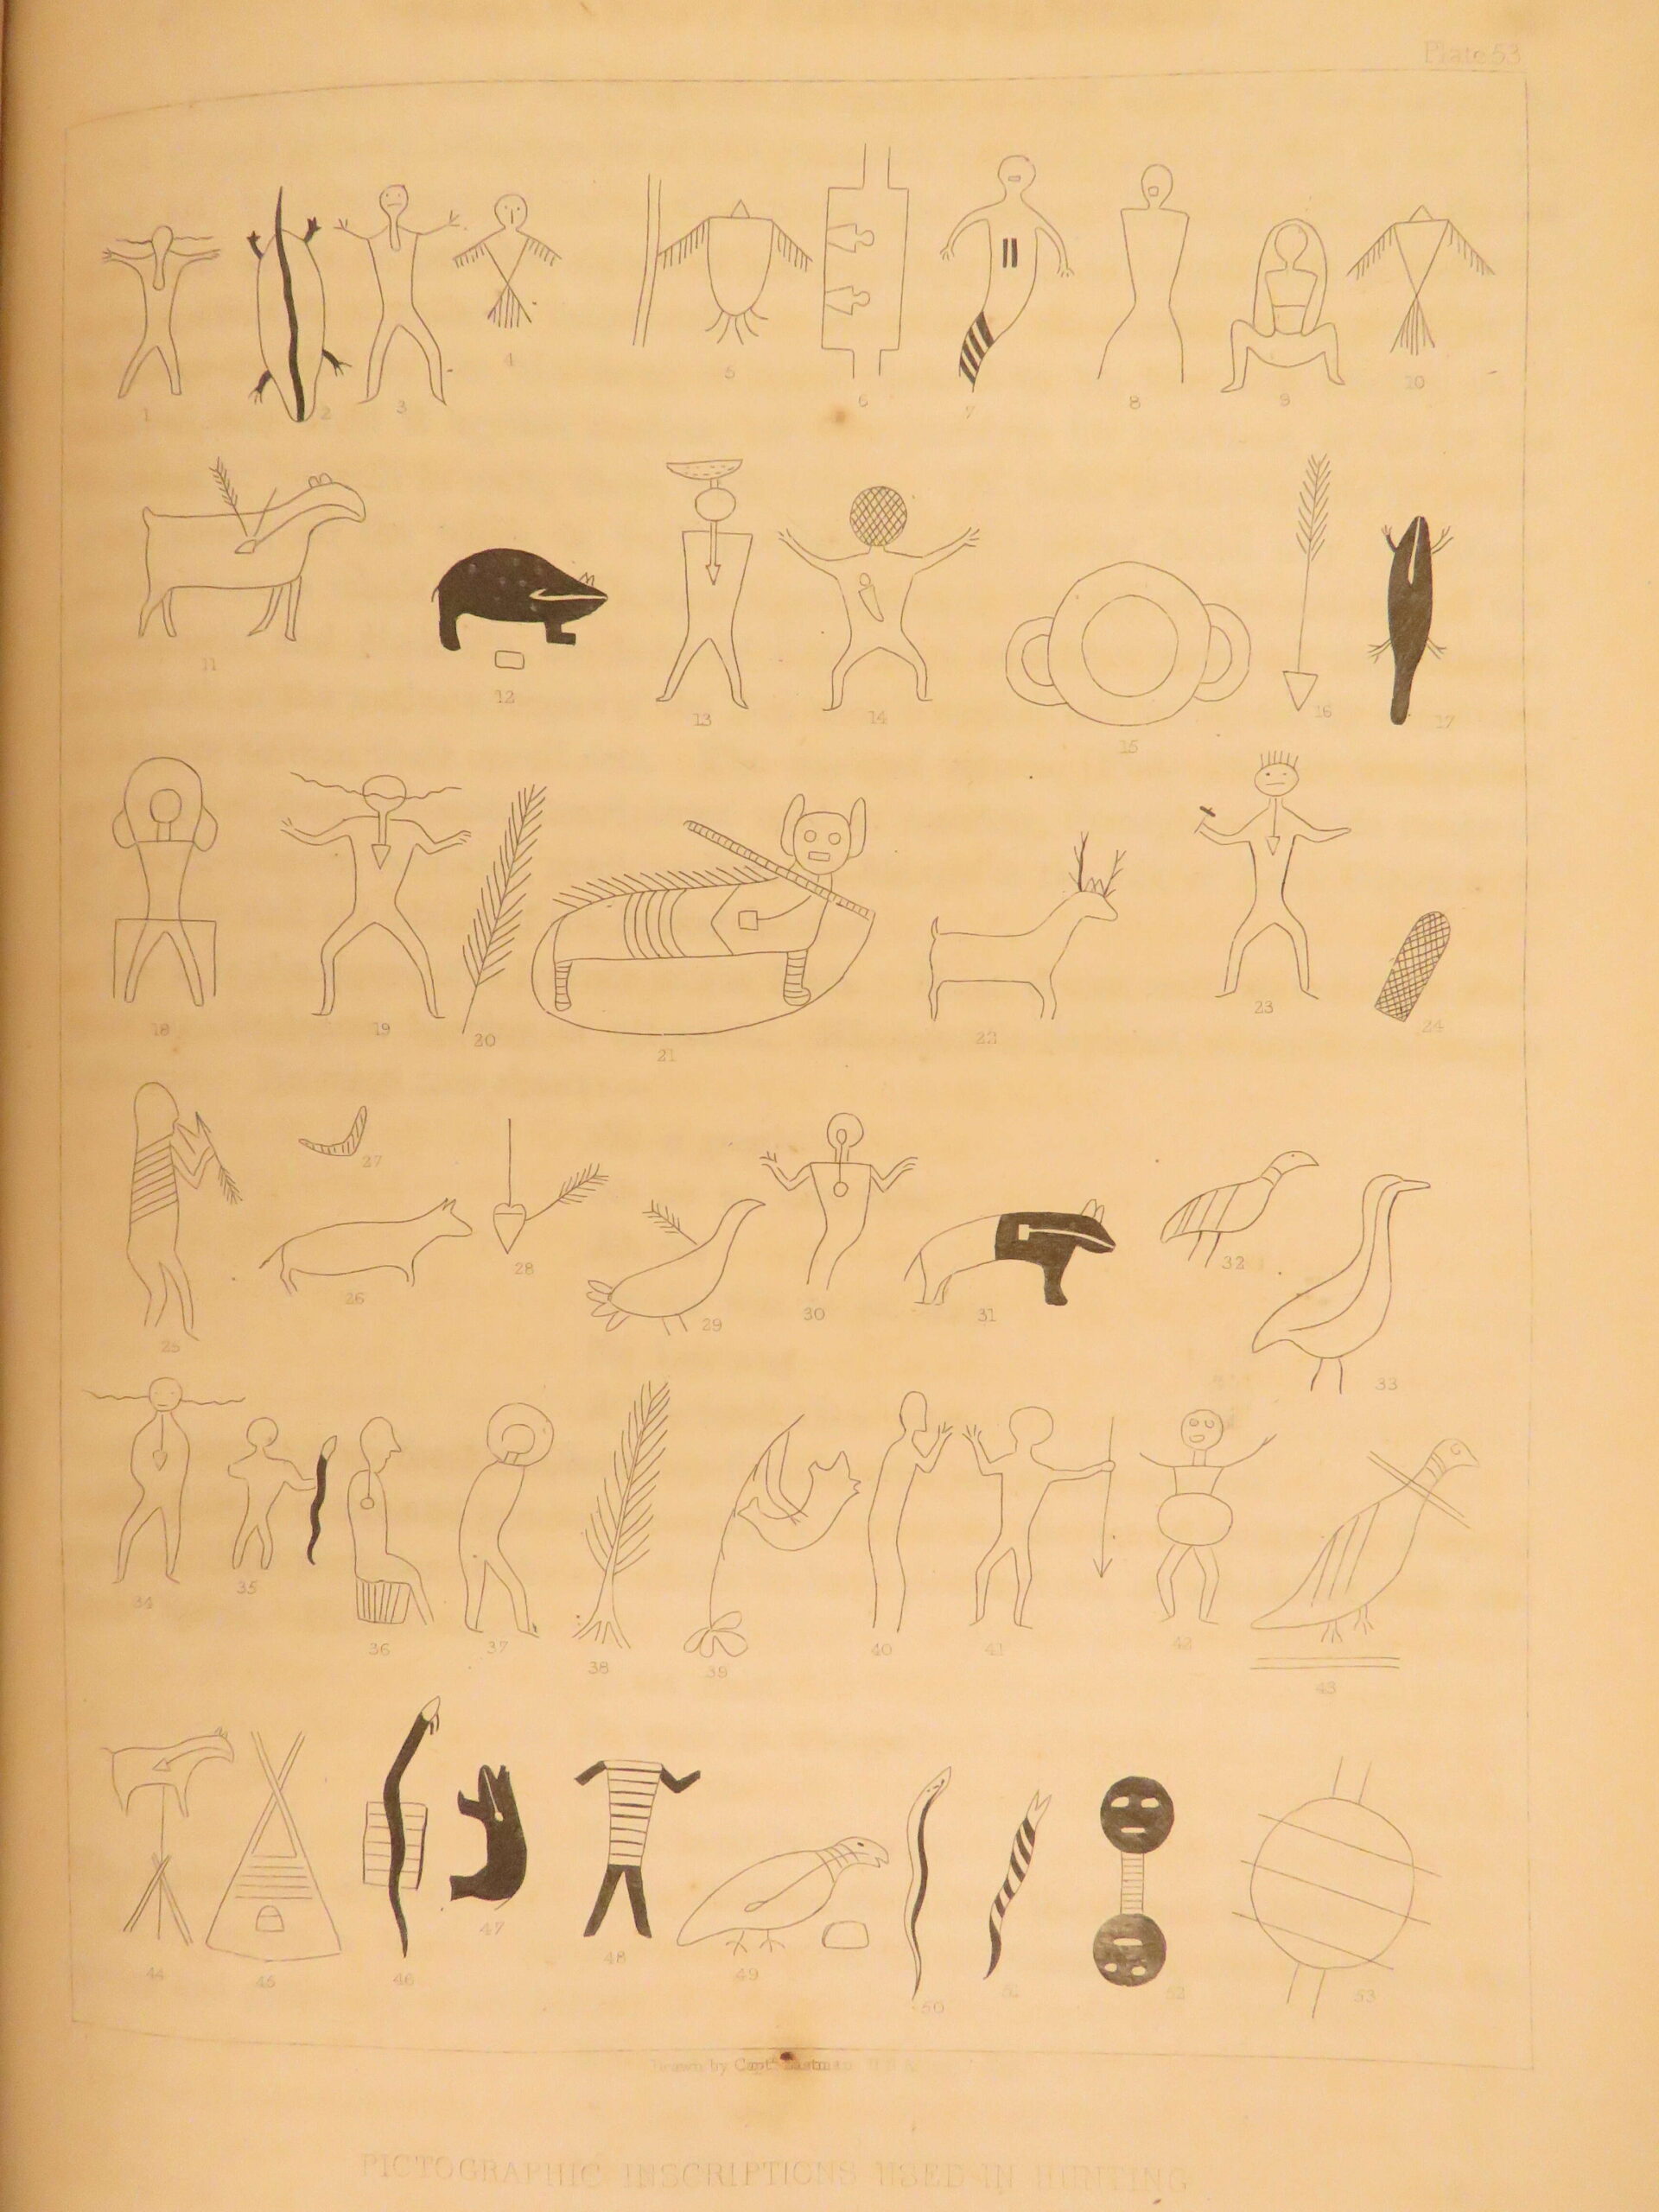 Plate 53
1 2 3 4 5 6 7 8 9 10
11 12 13 14 15 16 17
18 19 20 21 22 23 24
25 26 27 28 29 30 31 32 33
34 35 36 37 38 39 40 41 42 43
44 45 46 47 48 49 50 51 52 53
Drawn by Capt. Eastman U.S.A.
PICTOGRAPHIC INSCRIPTIONS USED IN HUNTING